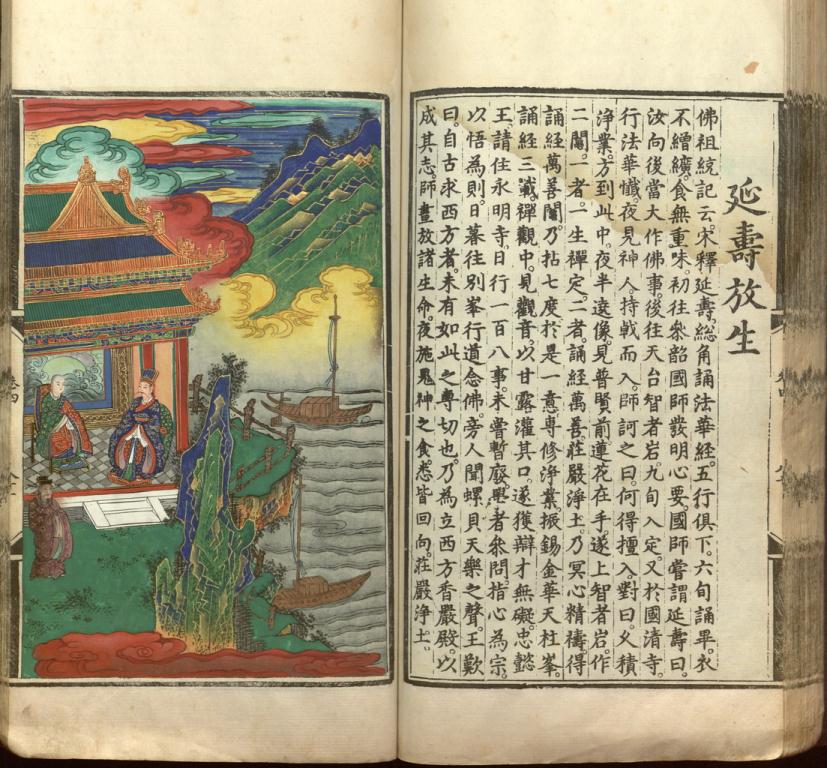 延壽放生
佛祖統記云。宋釋延壽。總角誦法華經。五行俱下。六旬誦畢。衣
不繒纊。食無重味。初往叅韶國師。發明心要。國師嘗謂延壽曰。
汝向後當大作佛事。後往天台智者岩。九旬入定。又於國清寺。
行法華懺。夜見神人。持戟而入。師訶之曰。何得擅入。對曰。久積
淨業。方到此中。夜半遶像。見普賢前蓮花在手。遂上智者岩。作
二鬮。一者。一生禪定。二者。誦經萬善。莊嚴淨土。乃冥心精禱。得
誦經萬善鬮。乃拈七度。於是一意專修淨業。振錫金華天柱峯。
誦經三載。禪觀中。見觀音。以甘露灌其口。遂獲辯才無礙。忠懿
王。請住永明寺。日行一百八事。未嘗暫廢。學者叅問。指心為宗。
以悟為則。日暮往別峯。行道念佛。旁人聞螺貝天樂之聲。王歎
曰。自古求西方者。未有如此之專切也。乃為立西方香嚴殿。以
成其志。師晝放諸生命。夜施鬼神之食。悉皆回向。莊嚴淨土。